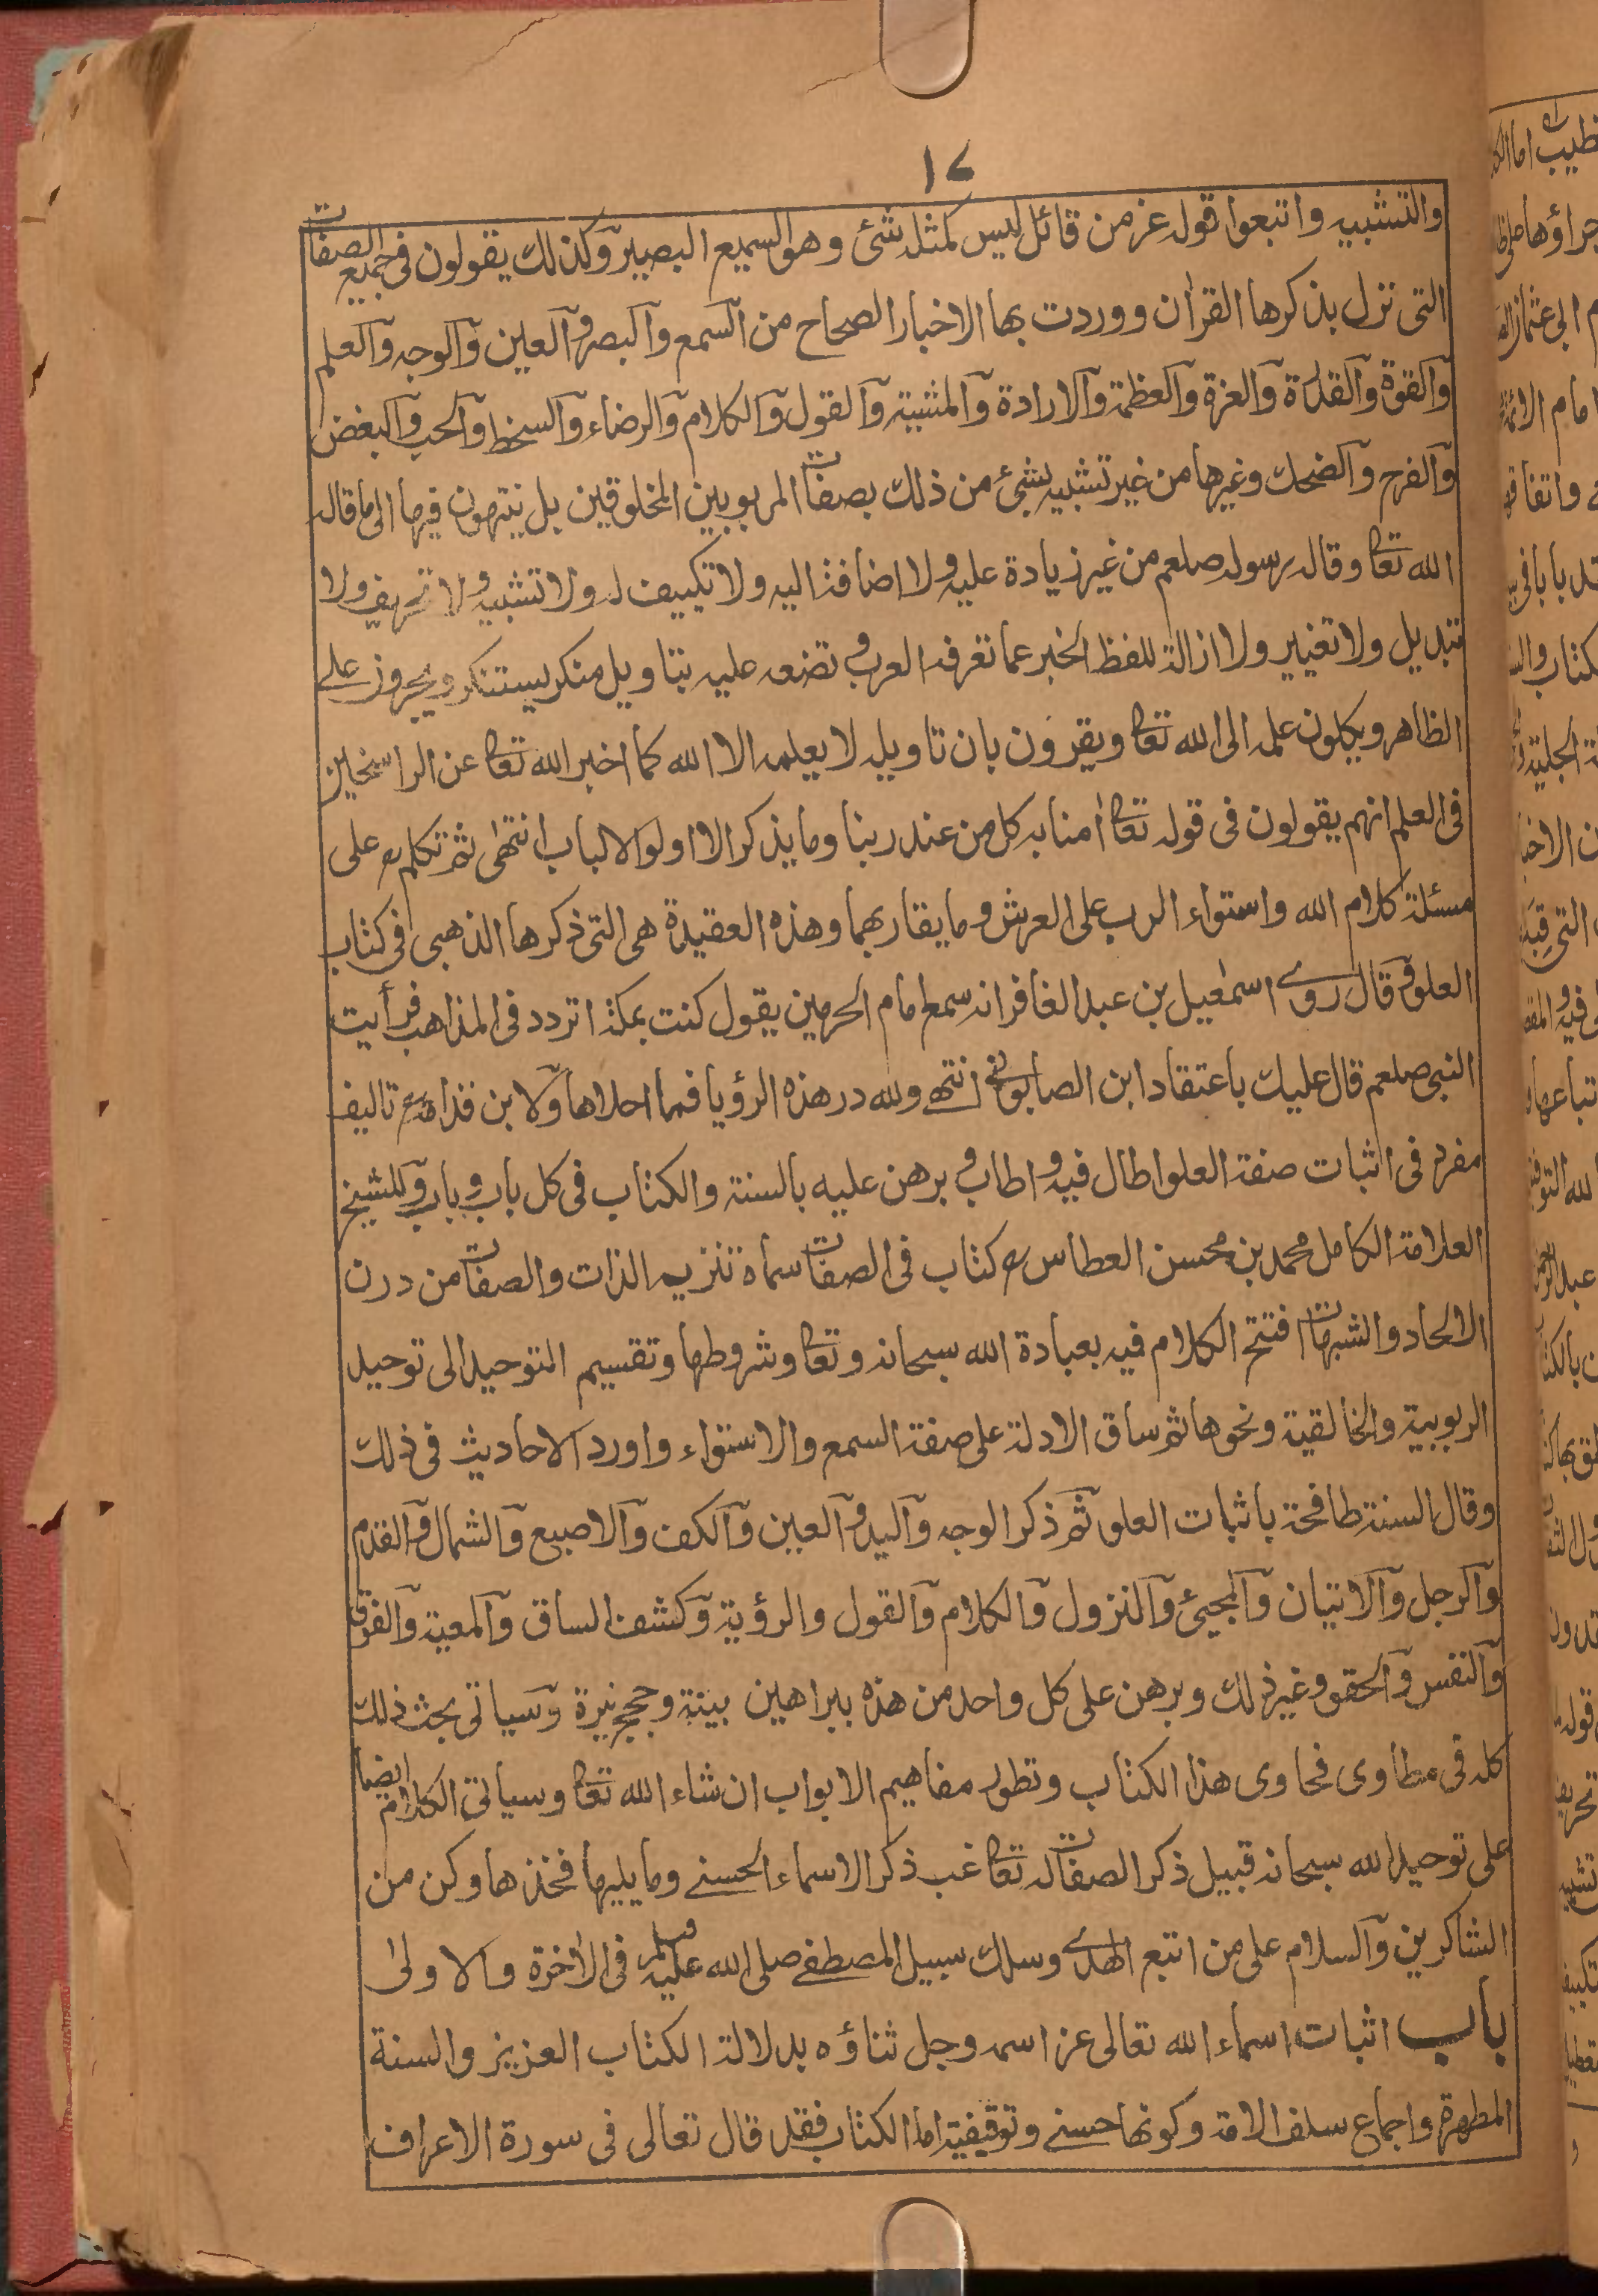 ١٧
والتشبيه واتبعوا قوله عز من قائل ليس كمثله شئ وهو السميع البصير وكذلك يقولون في جميع الصفات
التى نزل بذكرها القراٰن ووردت بها الاخبار الصحاح من السمع والبصر والعين والوجه والعلم
والقوة والقدرة والعزة والعظمة والارادة والمشية والقول والكلام والرضاء والسخط والحب والبغض
والفرح والضحك وغيرها من غير تشبيه لشئ من ذلك بصفات المربوبين المخلوقين بل ينتهون فيها الى ما قاله
الله تعا وقاله رسوله صلعم من غير زيادة عليه ولا اضافة اليه ولا تكييف له ولا تشبيه ولا تحريف ولا
تبديل ولا تغيير ولا ازالة للفظ الخبر عما تعرفه العرب وتضعه عليه بتاويل منكر يستنكر ويجرون على
الظاهر ويكلون علمه الى الله تعا ويقرون بان تاويله لا يعلمه الا الله كما اخبر الله تعا عن الراسخين
فى العلم انهم يقولون فى قوله تعا اٰمنا به كل من عند ربنا وما يذكر الا اولوا الالباب انتهٰى ثم تكلم رح على
مسئلة كلام الله واستواء الرب على العرش وما يقاربهما وهذه العقيدة هى التى ذكرها الذهبى فى كتاب
العلو وقال روى اسمٰعيل بن عبد الغافر انه سمع امام الحرمين يقول كنت بمكة اتردد فى المذاهب فرأيت
النبى صلعم قال عليك باعتقاد ابن الصابونى انتهى ولله در هذه الرؤيا فما احلاها ولابن قدامة رح تاليف
مفرد فى اثبات صفة العلو اطال فيه واطاب وبرهن عليه بالسنة والكتاب فى كل باب وباب وللشيخ
العلامة الكامل محمد بن محسن العطاس رح كتاب فى الصفات سماه تنزيه الذات والصفات من درن
الالحاد والشبهات افتتح الكلام فيه بعبادة الله سبحانه وتعا وشروطها وتقسيم التوحيد الى توحيد
الربوبية والخالقية ونحوها ثم ساق الادلة على صفة السمع والاستواء واورد الاحاديث فى ذلك
وقال السنة طافحة باثبات العلو ثم ذكر الوجه واليد والعين والكف والاصبع والشمال والقدم
والرجل والاتيان والمجيئ والنزول والكلام والقول والرؤية وكشف الساق والمعية والفرق
والنفس والحقو وغير ذلك وبرهن على كل واحد من هذه ببراهين بينة وحجج نيرة وسياتى بحث ذلك
كله فى مطاوى فحاوى هذا الكتاب وتطور مفاهيم الابواب ان شاء الله تعا وسياتى الكلام ايضا
على توحيد الله سبحانه قبيل ذكر الصفات له تعا غب ذكر الاسماء الحسنى وما يليها فخذها وكن من
الشاكرين والسلام على من اتبع الهدى وسلك سبيل المصطفى صلى الله عليه وسلم فى الاٰخرة والاولى
باب اثبات اسماء الله تعالى عز اسمه وجل ثناؤه بدلالة الكتاب العزيز والسنة
المطهرة واجماع سلف الامة وكونها حسنى وتوقيفية اما الكتاب فقد قال تعالى فى سورة الاعراف